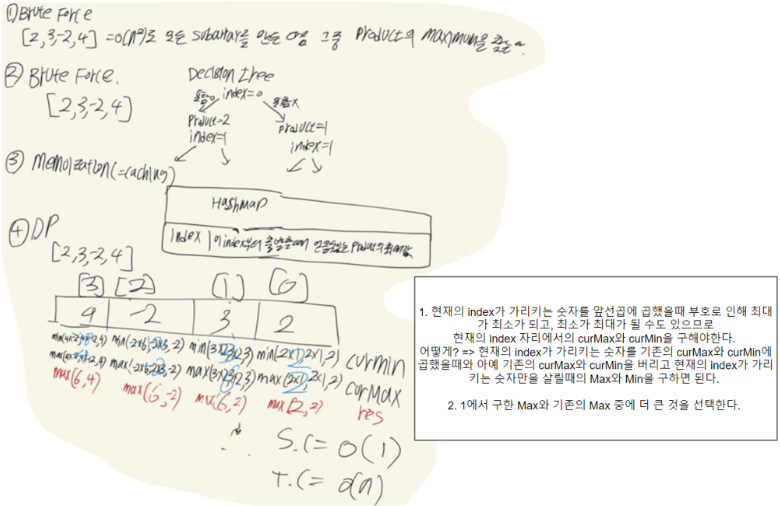 ① Brute Force
[2,3,-2,4] = O(n²)로 모든 subarray를 만든 다음 그중 Product의 maximum을 찾는
② Brute Force.
Decision tree
[2,3,-2,4]
index=0
포함O
포함X
product=2
index=1
product=1
index=1
③ Memoization(=caching)
HashMap
index | 이 index부터 출발했을때 만들수있는 Product의 최대값
④ DP
[2,3,-2,4]
[3] [2] [1] [0]
-2 3 2
curMin
curMax
max(6,4) max(6,-2) max(6,2) max(2,2) res
S.C = O(1)
T.C = O(n)
1. 현재의 index가 가리키는 숫자를 앞선곱에 곱했을때 부호로 인해 최대
가 최소가 되고, 최소가 최대가 될 수도 있으므로
현재의 index 자리에서의 curMax와 curMin을 구해야한다.
어떻게? => 현재의 index가 가리키는 숫자를 기존의 curMax와 curMin에
곱했을때와 아예 기존의 curMax와 curMin을 버리고 현재의 index가 가리
키는 숫자만을 살릴때의 Max와 Min을 구하면 된다.
2. 1에서 구한 Max와 기존의 Max 중에 더 큰 것을 선택한다.